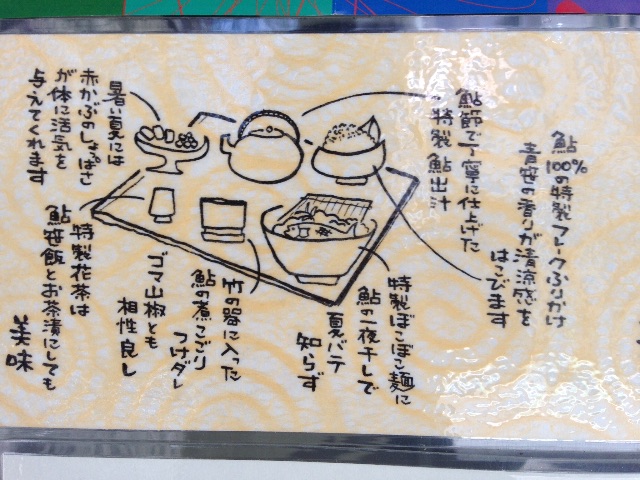 鮎
100%の特製フレークふりかけ
青笹の香りが清涼感を
はこびます
鮎節で丁寧に仕上げた
特製鮎出汁
暑い夏には
赤かぶのしょっぱさ
が体に活気を
与えてくれます
特製ぼこぼこ麺に
鮎の一夜干しで
夏バテ
知らず
竹の器に入った
鮎の煮こごり
つけダレ
ゴマ山椒とも
相性良し
特製花茶は
鮎笹飯とお茶漬にしても
美味